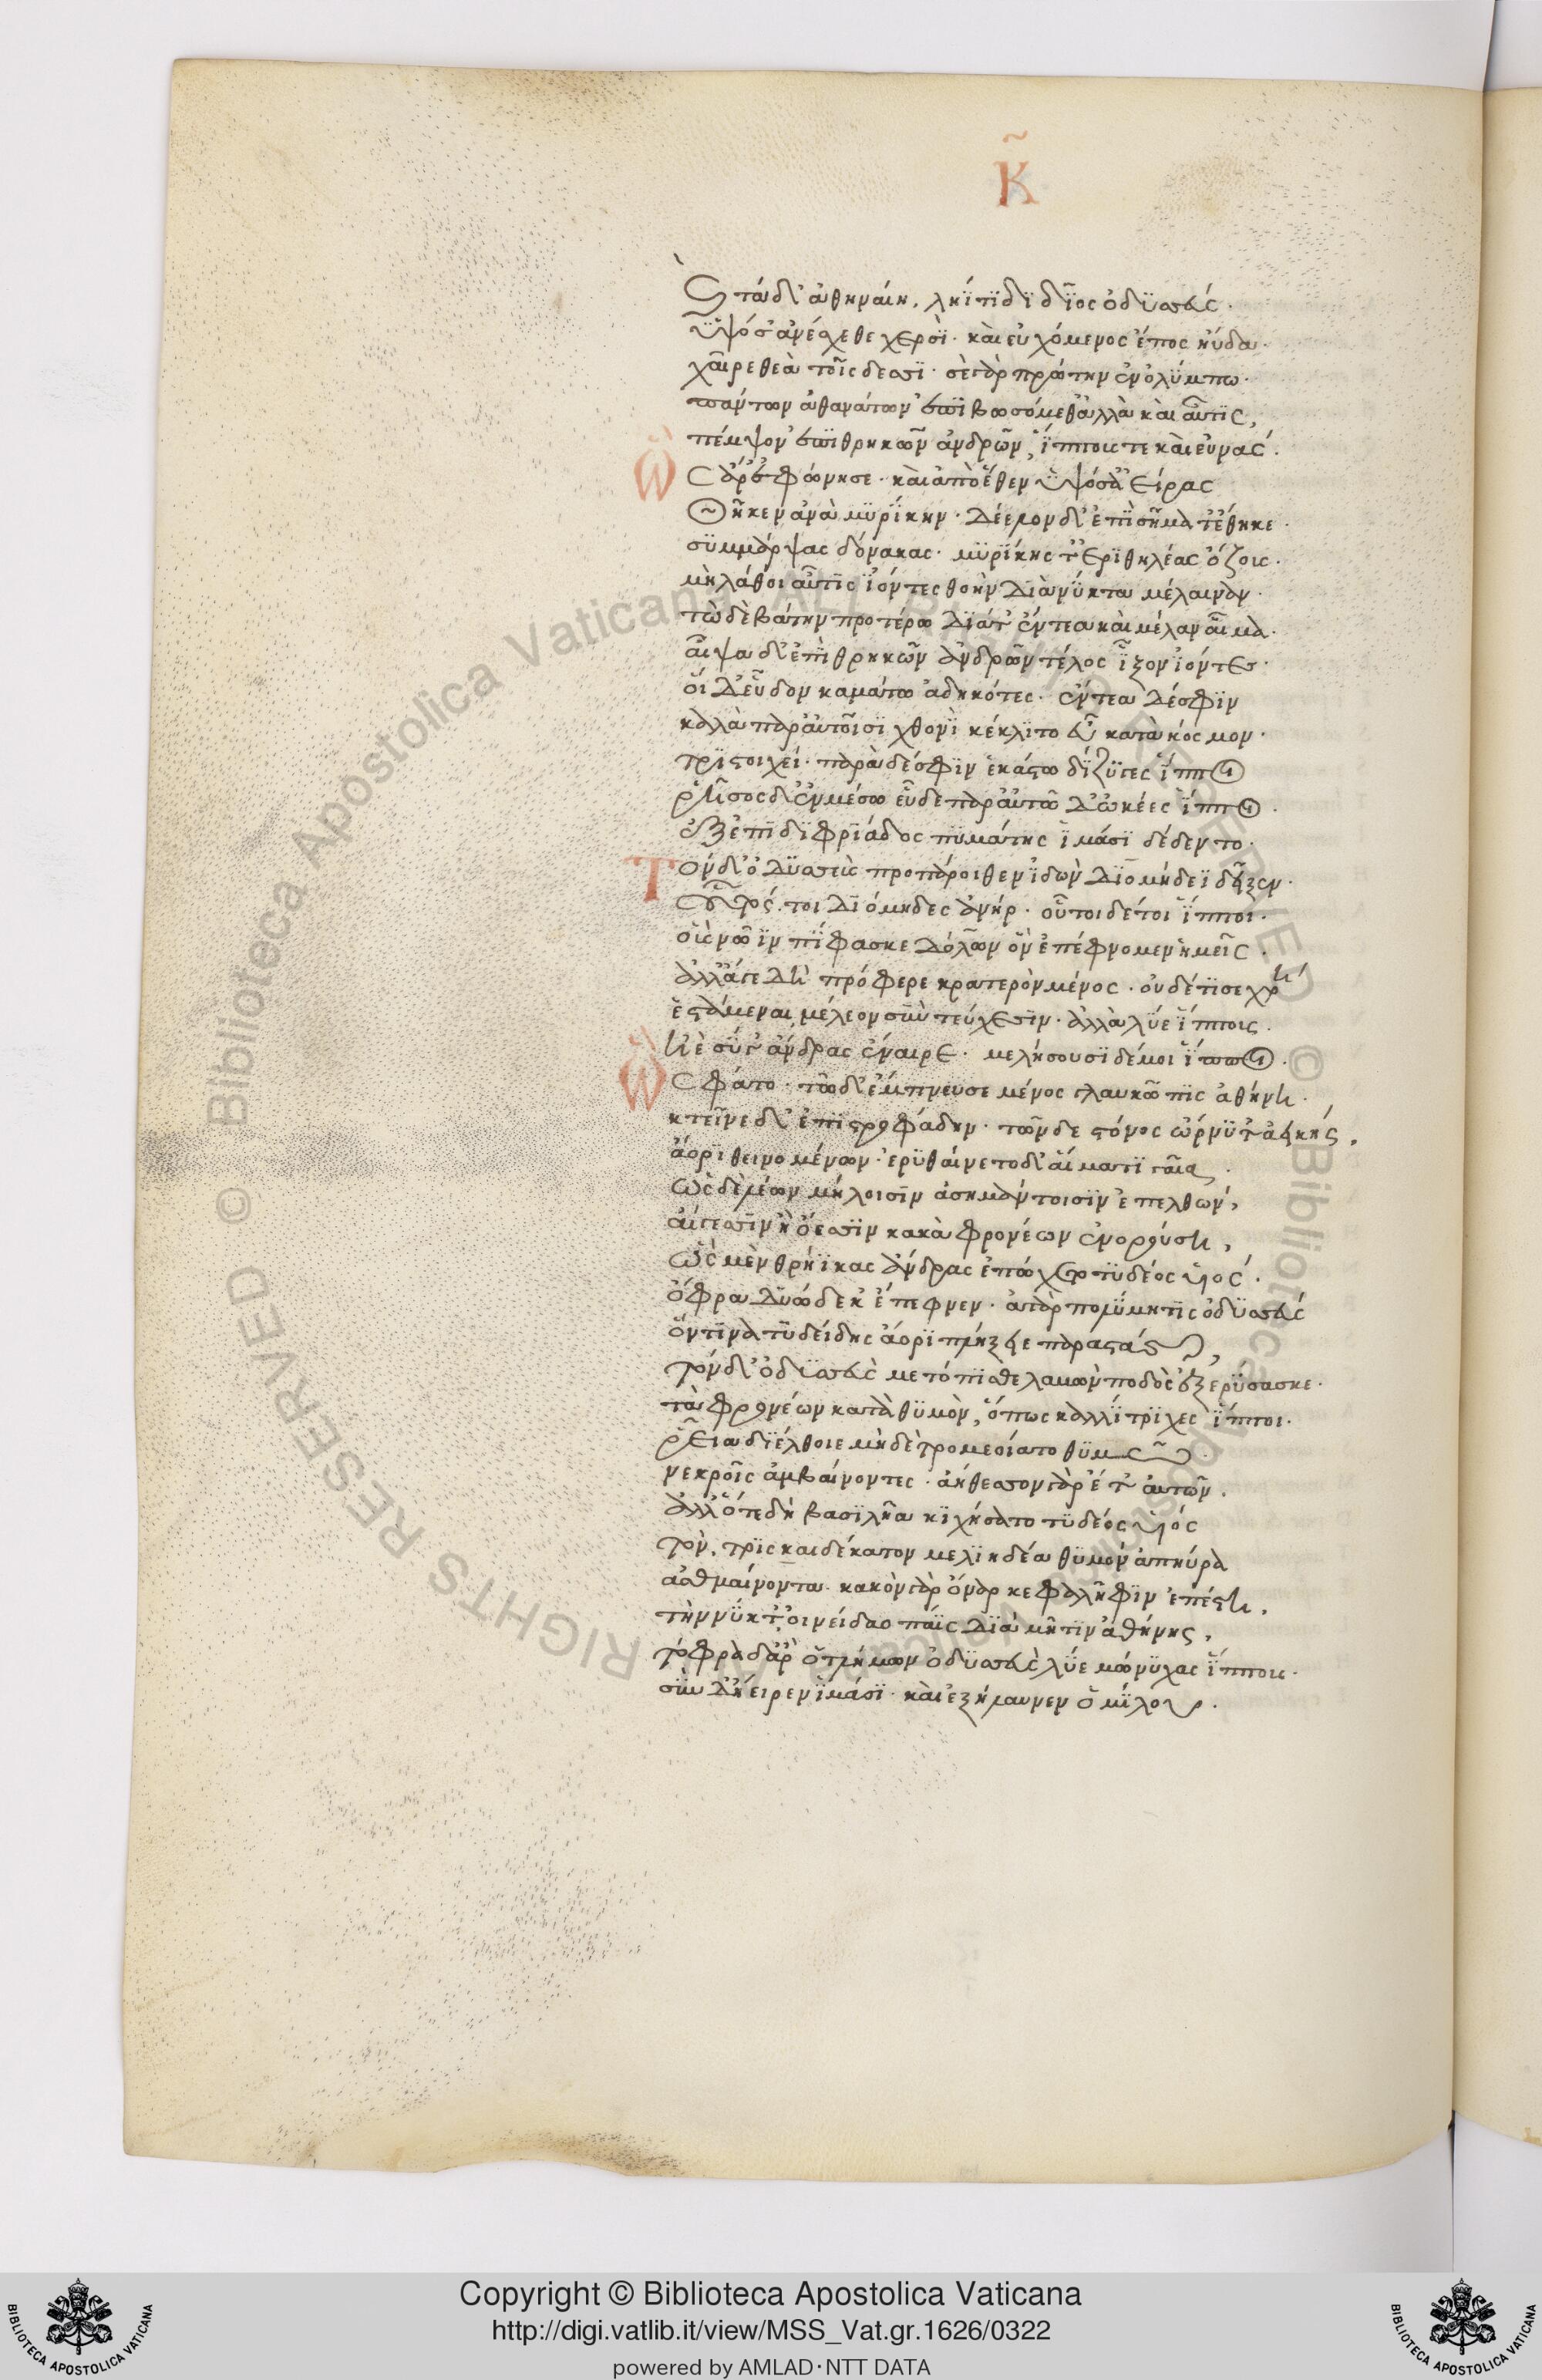 Κ̃
τάδ' ἀθηναίη, ληΐτιδι δῖος ὀδυσσεύς·
ὑψόσ' ἀνέσχεθε χερσὶ· καὶ εὐχόμενος ἔπος ηὔδα·
χαῖρε θεὰ τοῖσδεσσι· σὲ γὰρ πρώτην ἐν ὀλύμπω·
πάντων ἀθανάτων ἐπιβωσόμεθ' ἀλλὰ καὶ αὖτις,
πέμψον ἐπὶ θρηκῶν ἀνδρῶν, ἵππους τε καὶ εὐνάς.
Ὣς ἄρ' ἐφώνησε· καὶ ἀπὸ ἕθεν ὑψόσ' ἀείρας
Θῆκεν ἀνὰ μυρίκην· δέελον δ' ἐπὶ σῆμά τ' ἔθηκε·
συμμάρψας δόνακας· μυρίκης τ' ἐριθηλέας ὄζους·
μὴ λάθοι αὖτις ἰόντες θοὴν διὰ νύκτα μέλαιναν·
τὼ δὲ βάτην προτέρω διά τ' ἔντεα καὶ μέλαν αἷμα·
αἶψα δ' ἐπὶ θρηκῶν ἀνδρῶν τέλος ἷξον ἰόντες·
οἱ δ' εὗδον καμάτω ἀδηκότες· ἔντεα δέ σφιν
καλὰ παρ' αὐτοῖσι χθονὶ κέκλιτο εὖ κατὰ κόσμον·
τριστοιχεί· παρὰ δέ σφιν ἑκάστω δίζυγες ἵπποι
ῥῆσος δ' ἐν μέσω εὗδε παρ' αὐτῶ δ' ὠκέες ἵπποι·
ἐξ ἐπιδιφριάδος πυμάτης ἱμάσι δέδεντο·
Τὸν δ' ὀδυσσεὺς προπάροιθεν ἰδὼν διομήδεϊ δεῖξεν·
οὗτός τοι διόμηδες ἀνήρ· οὗτοι δέ τοι ἵπποι·
οὓς νῶϊν πίφασκε δόλων ὃν ἐπέφνομεν ἡμεῖς·
ἀλλ' ἄγε δὴ πρόφερε κρατερὸν μένος· οὐδέ τί σε χρή
ἑστάμεναι μέλεον σὺν τεύχεσιν· ἀλλὰ λύε ἵππους·
ἠὲ σύγ' ἄνδρας ἔναιρε· μελήσουσι δ' ἐμοὶ ἵπποι·
Ὣς φάτο· τῶ δ' ἔμπνευσε μένος γλαυκῶπις ἀθήνη·
κτεῖνε δ' ἐπιστροφάδην· τῶν δε στόνος ὤρνυτ' ἀεικής,
ἄορι θεινομένων· ἐρυθαίνετο δ' αἵματι γαῖα·
ὡς δὲ λέων μήλοισιν ἀσημάντοισιν ἐπελθών,
αἴγεσιν ἢ ὀΐεσσιν κακὰ φρονέων ἐνορούση,
ὣς μὲν θρήϊκας ἄνδρας ἐπώχετο τυδέος υἱός·
ὄφρα δυώδεκ' ἔπεφνεν· ἀτὰρ πολύμητις ὀδυσσεύς
ὅντινα τυδείδης ἄορι πλήξειε παραστάς,
τὸν δ' ὀδυσσεὺς μετόπισθε λαβὼν ποδὸς ἐξερύσασκε·
τὰ φρονέων κατὰ θυμὸν, ὅπως καλλίτριχες ἵπποι·
ῥεῖα διέλθοιε μηδὲ τρομεοίατο θυμῶ·
νεκροῖς ἀμβαίνοντες· ἀήθεσσον γὰρ ἔτ' αὐτῶν·
ἀλλ' ὅτε δὴ βασιλῆα κιχήσατο τυδέος υἱός
τὸν, τρισκαιδέκατον μελιηδέα θυμὸν ἀπηύρα
ἀσθμαίνοντα· κακὸν γὰρ ὄναρ κεφαλῆφιν ἐπέστη,
τὴν νύκτ', οἰνείδαο πάϊς διὰ μῆτιν ἀθήνης,
τόφρα δ' ἄρ' ὁ τλήμων ὀδυσσεὺς λύε μώνυχας ἵππους·
σὺν δ' ἤειρεν ἱμάσι· καὶ ἐξήλαυνεν ὁμίλου·
Copyright © Biblioteca Apostolica Vaticana
http://digi.vatlib.it/view/MSS_Vat.gr.1626/0322
powered by AMLAD·NTT DATA
BIBLIOTECA APOSTOLICA VATICANA
BIBLIOTECA APOSTOLICA VATICANA